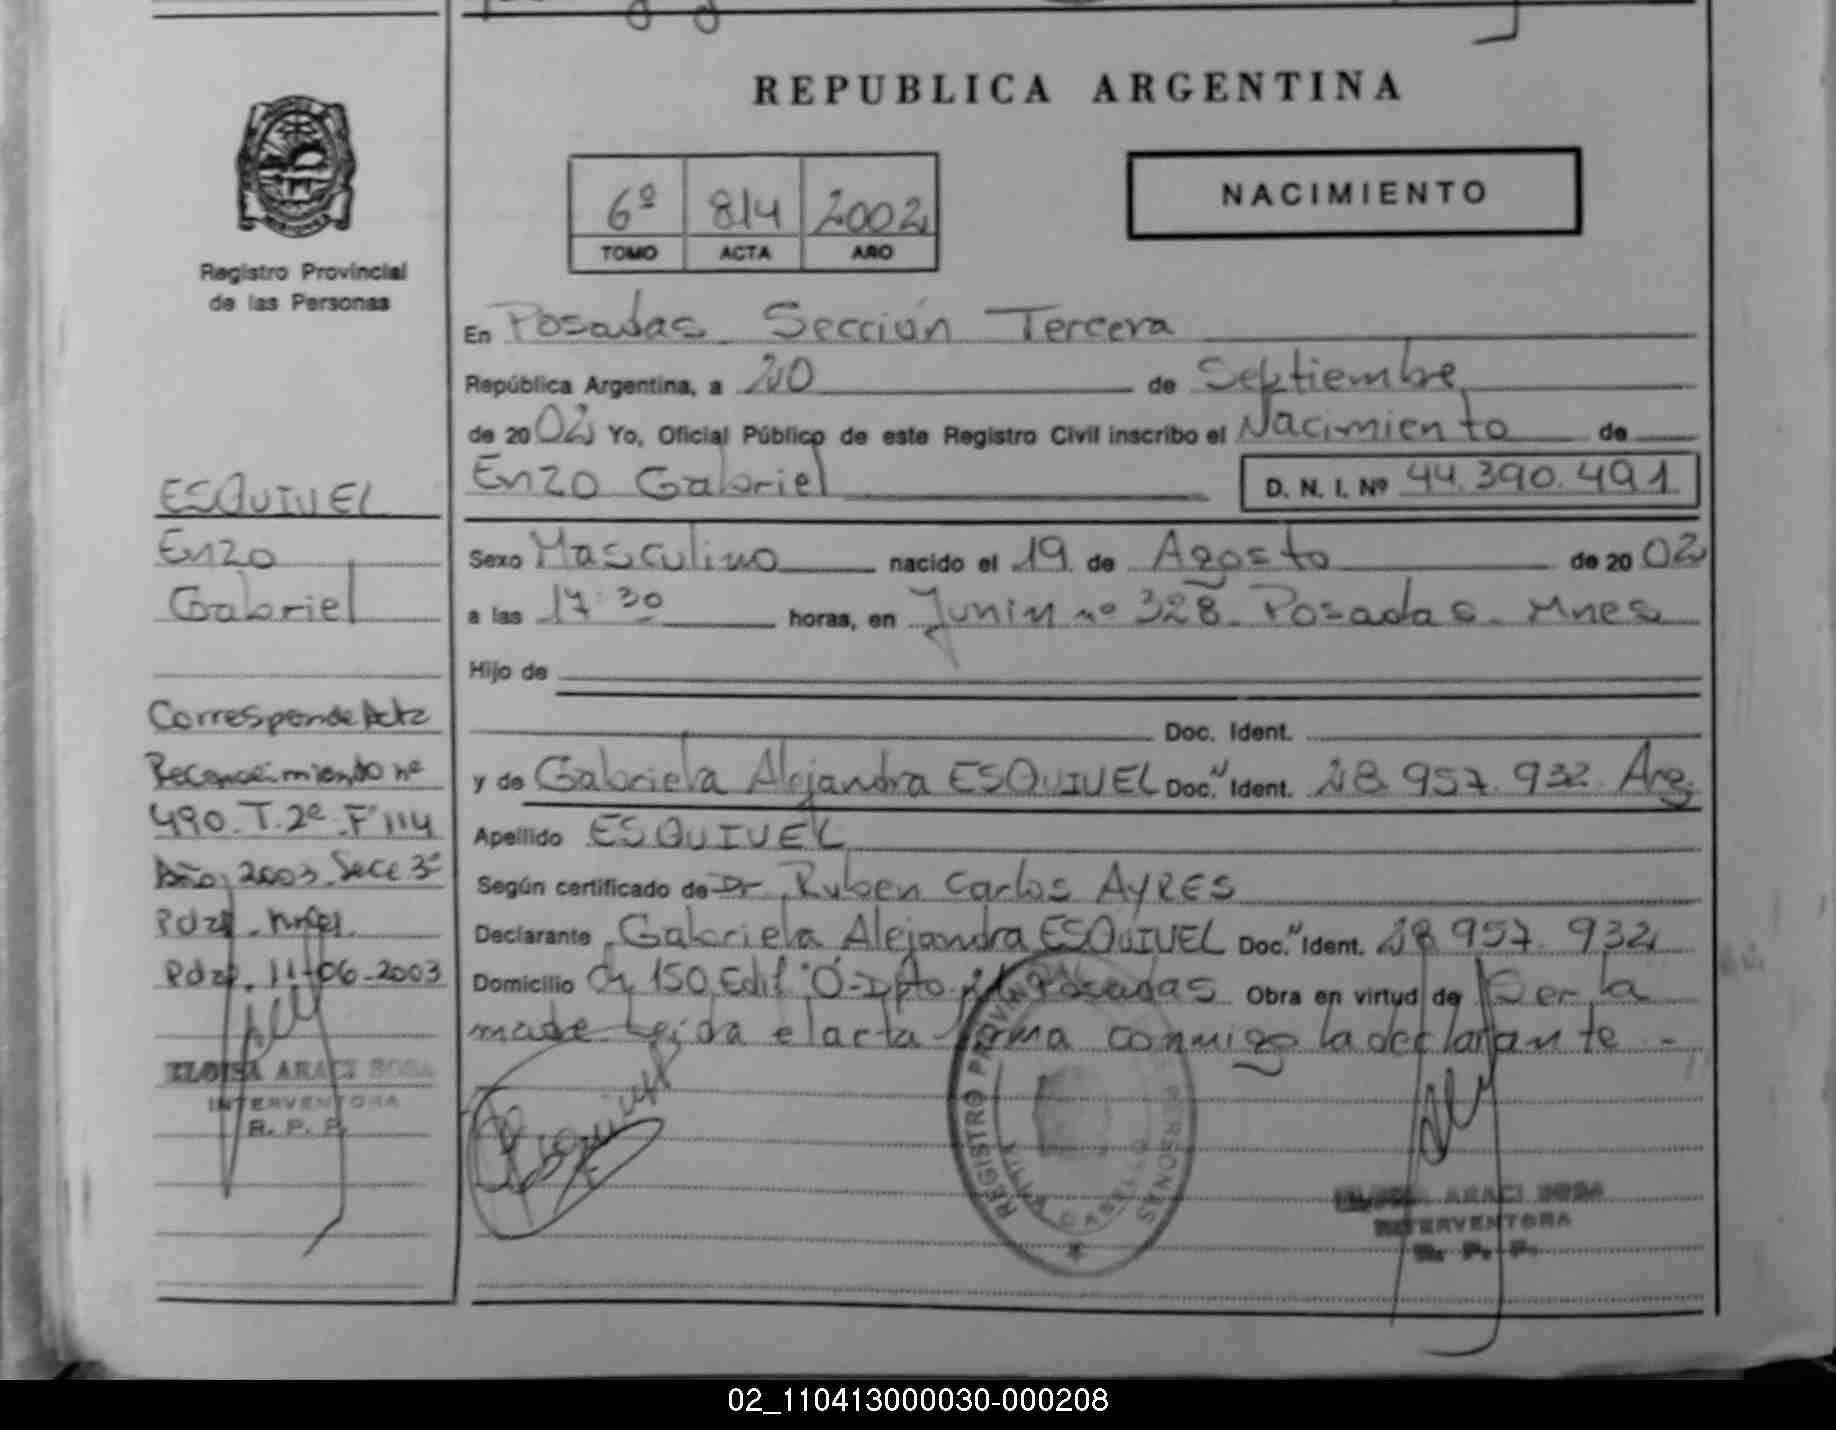 REPUBLICA ARGENTINA
6º 814 2002
TOMO ACTA AÑO
NACIMIENTO
Registro Provincial
de las Personas
En Posadas Sección Tercera
República Argentina, a 20 de Septiembre
de 2002 Yo, Oficial Público de este Registro Civil inscribo el Nacimiento de
Enzo Gabriel D. N. I. Nº 44.390.491
Sexo Masculino nacido el 19 de Agosto de 2002
a las 17:30 horas, en Junin nº 328. Posadas. Mnes
Hijo de
Doc. Ident.
y de Gabriela Alejandra ESQUIVEL Doc. Ident. 28.957.932. Arg.
Apellido ESQUIVEL
Según certificado de Dr. Ruben Carlos AYRES
Declarante Gabriela Alejandra ESQUIVEL Doc. Ident. 28.957.932
Domicilio Ch 150 Edif "O"-Dpto Posadas Obra en virtud de Ser la
madre Leida el acta firma conmigo la declarante -
ESQUIVEL
Enzo
Gabriel
Corresponde Acta
Reconocimiento nº
490. T. 2º. Fº 114
Año 2003. Secc 3º
Pdas. Mnes.
Pdas. 11-06-2003
ELOISA ARACI SOSA
INTERVENTORA
R. P. P.
REGISTRO PROVINCIAL PERSONAS
ELOISA ARACI SOSA
INTERVENTORA
R. P. P.
02_110413000030-000208